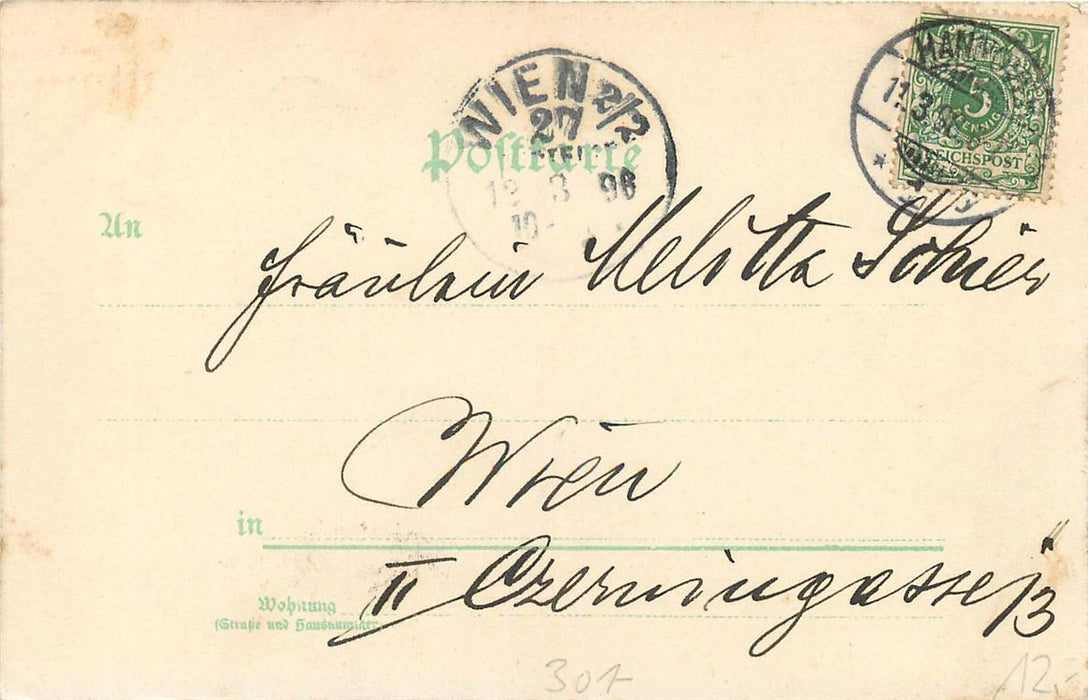 HAN
11.3.
5
PFENNIG
REICHSPOST
WIEN 2/2
27
Postkarte
3 98
10-
An
Fräulein Melitta
Wien
in
II Czerningasse 13
Wohnung
(Straße und Hausnummer)
301
12.-